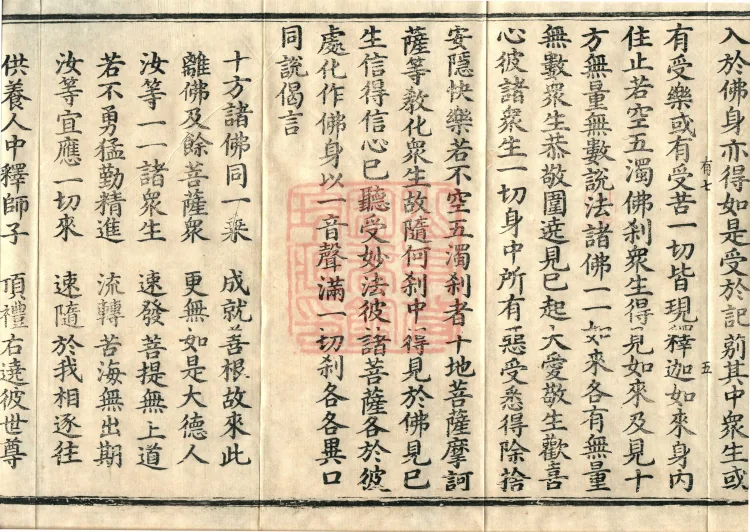 入於佛身亦得如是受於記莂其中衆生或
有受樂或有受苦一切皆現釋迦如來身内
有七
五
住止若空五濁佛刹衆生得見如來及見十
方無量無數說法諸佛一一如來各有無量
無數衆生恭敬圍遶見已起大愛敬生歡喜
心彼諸衆生一切身中所有惡受悉得除捨
安隱快樂若不空五濁刹者十地菩薩摩訶
薩等敎化衆生故隨何刹中得見於佛見已
生信得信心已聽受妙法彼諸菩薩各於彼
處化作佛身以一音聲滿一切刹各各異口
同說偈言
十方諸佛同一乘　成就善根故來此
離佛及餘菩薩衆　更無如是大德人
汝等一一諸衆生　速發菩提無上道
若不勇猛勤精進　流轉苦海無出期
汝等宜應一切來　速隨於我相逐往
供養人中釋師子　頂禮右遶彼世尊